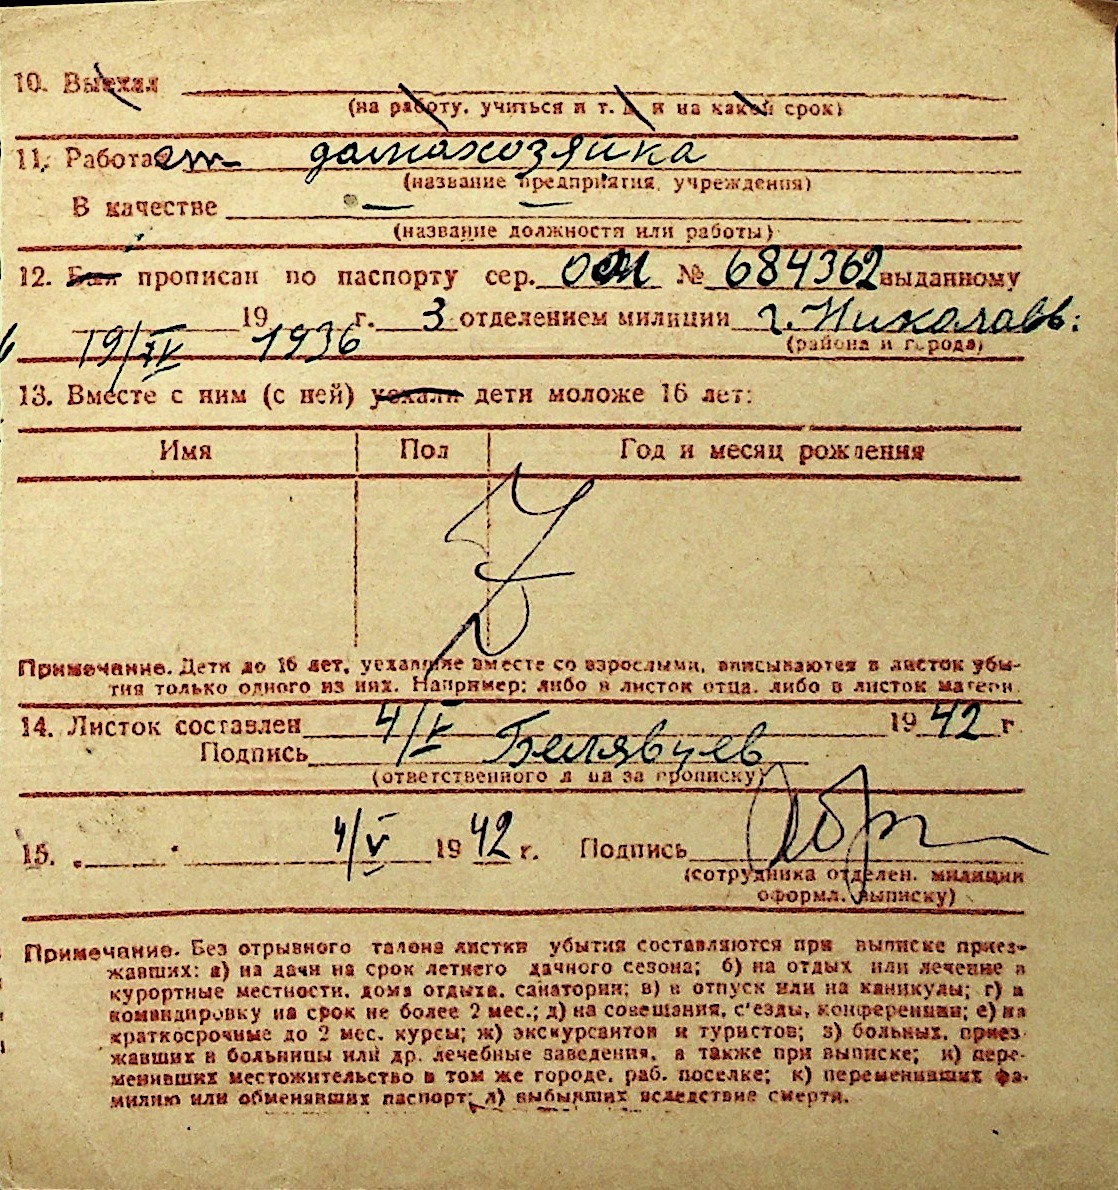 10. Выехал
(на работу, учиться и т. д. и на какой срок)
11. Работает домохозяйка
(название предприятия, учреждения)
В качестве — —
(название должности или работы)
12. Был прописан по паспорту сер. № 684362 выданному
19 г. 3 отделением милиции г. Николаев:
19/IV 1936 (района и города)
13. Вместе с ним (с ней) уехали дети моложе 16 лет:
Имя Пол Год и месяц рождения
Z
Примечание. Дети до 16 лет, уехавшие вместе со взрослыми, вписываются в листок убы-
тия только одного из них. Например: либо в листок отца, либо в листок матери.
14. Листок составлен 4/V 1942 г
Подпись Белявцев
(ответственного лица за прописку)
15. 4/V 1942 г. Подпись
(сотрудника отделен. милиции
оформл. выписку)
Примечание. Без отрывного талона листки убытия составляются при выписке приез-
жавших: а) на дачи на срок летнего дачного сезона; б) на отдых или лечение в
курортные местности, дома отдыха, санатории; в) в отпуск или на каникулы; г) в
командировку на срок не более 2 мес.; д) на совещания, с'езды, конференции; е) на
краткосрочные до 2 мес. курсы; ж) экскурсантов и туристов; з) больных, приез-
жавших в больницы или др. лечебные заведения, а также при выписке; и) пере-
менивших местожительство в том же городе, раб. поселке; к) переменивших фа-
милию или обменявших паспорт; л) выбывших вследствие смерти.